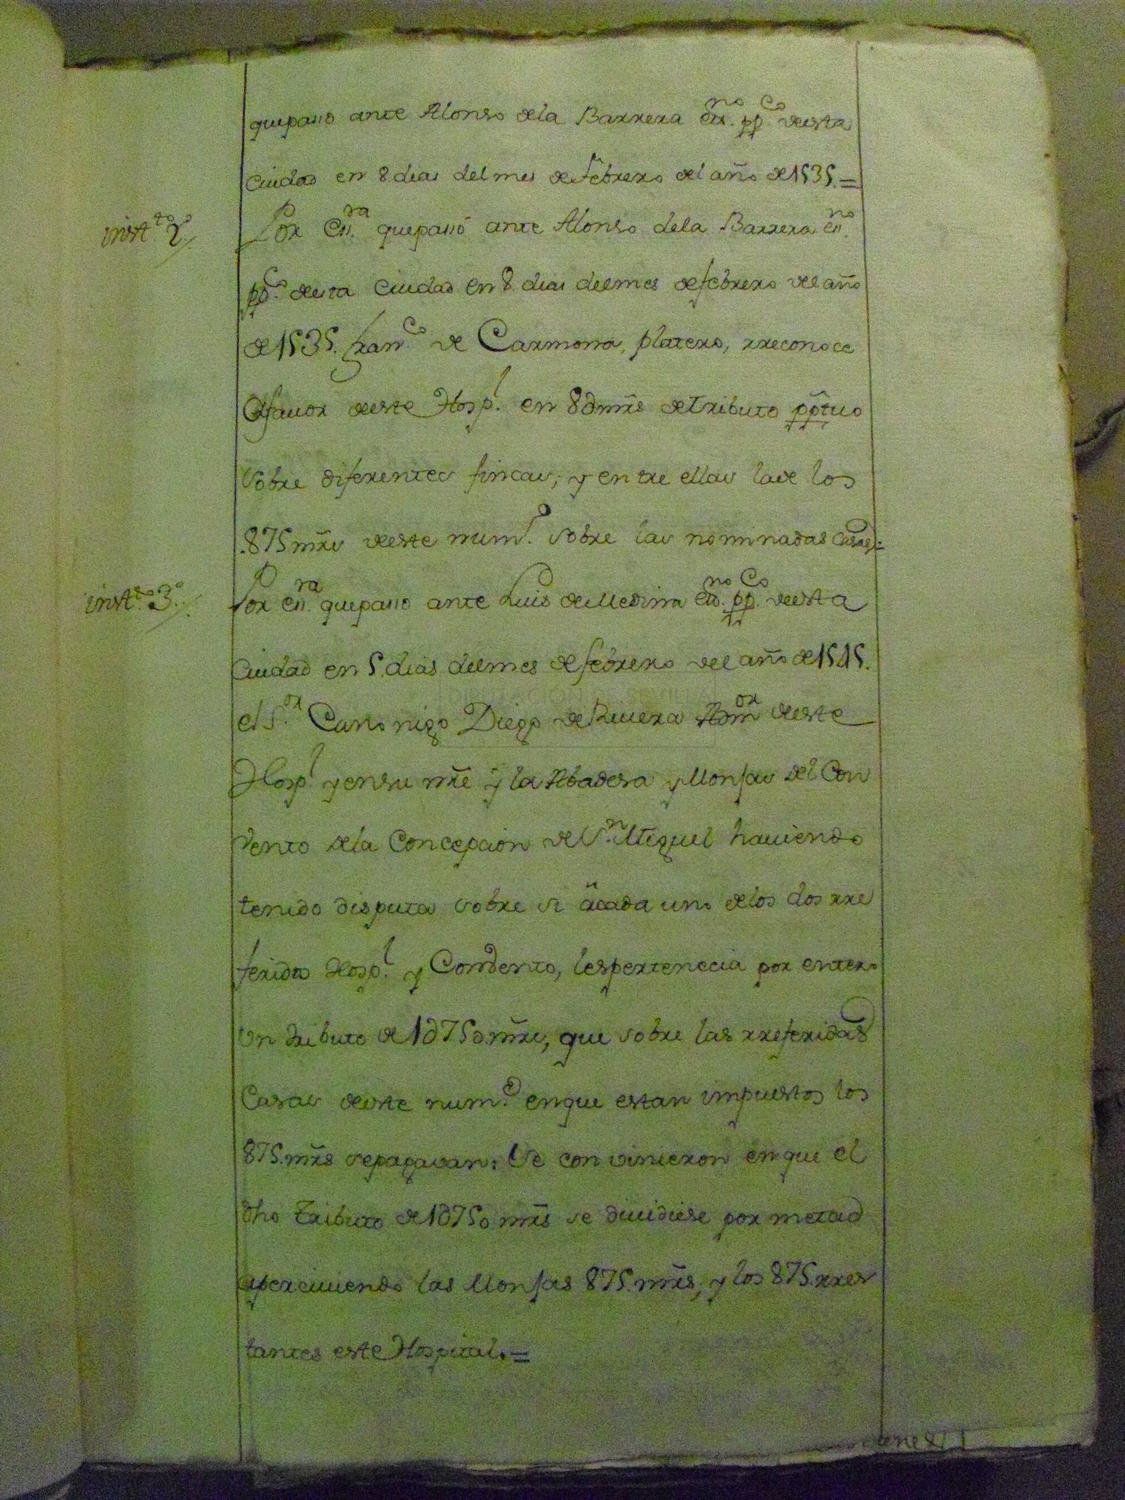 que passo ante Alonso dela Barrera Ess.no pp.co desta
ciudad en 8 dias del mes de febrero del año de 1535. =
instt.to 2º
Por Ess.ra que passó ante Alonso dela Barrera ess.no
pp.co desta ciudad en 8 dias del mes de febrero del año
de 1535. fran.co de Carmona, platero, rreconoce
afauor deeste Hosp.l en 8 mrs de tributo pptuo
sobre diferentes fincas; y entre ellas lade los
875 mrs deeste num.o sobre las nominadas casas =
instt.to 3º
Por ess.ra que passo ante Luis de Medina Ess.no pp.co desta
ciudad en 5 dias del mes de febrero del año de 1545.
el S.or Canonigo Diego de Riuera Adm.or deeste
Hosp.l y en su nre y la Abadesa y Monjas del Con
vento dela Concepcion de S.n Miguel hauiendo
tenido disputa sobre si à cada uno delos dos rre
feridos Hosp.l y Convento, les pertenecia por entero
Un tributo de 1750 mrs, que sobre las rreferidas
Casas deeste num.o en que estan impuestos los
875 mrs se pagavan: Se convinieron en que el
dho tributo de 1750 mrs se diuidiese por metad
aperciuiendo las Monjas 875 mrs, y los 875 rres
tantes este Hospital. =
DIPUTACION DE SEVILLA